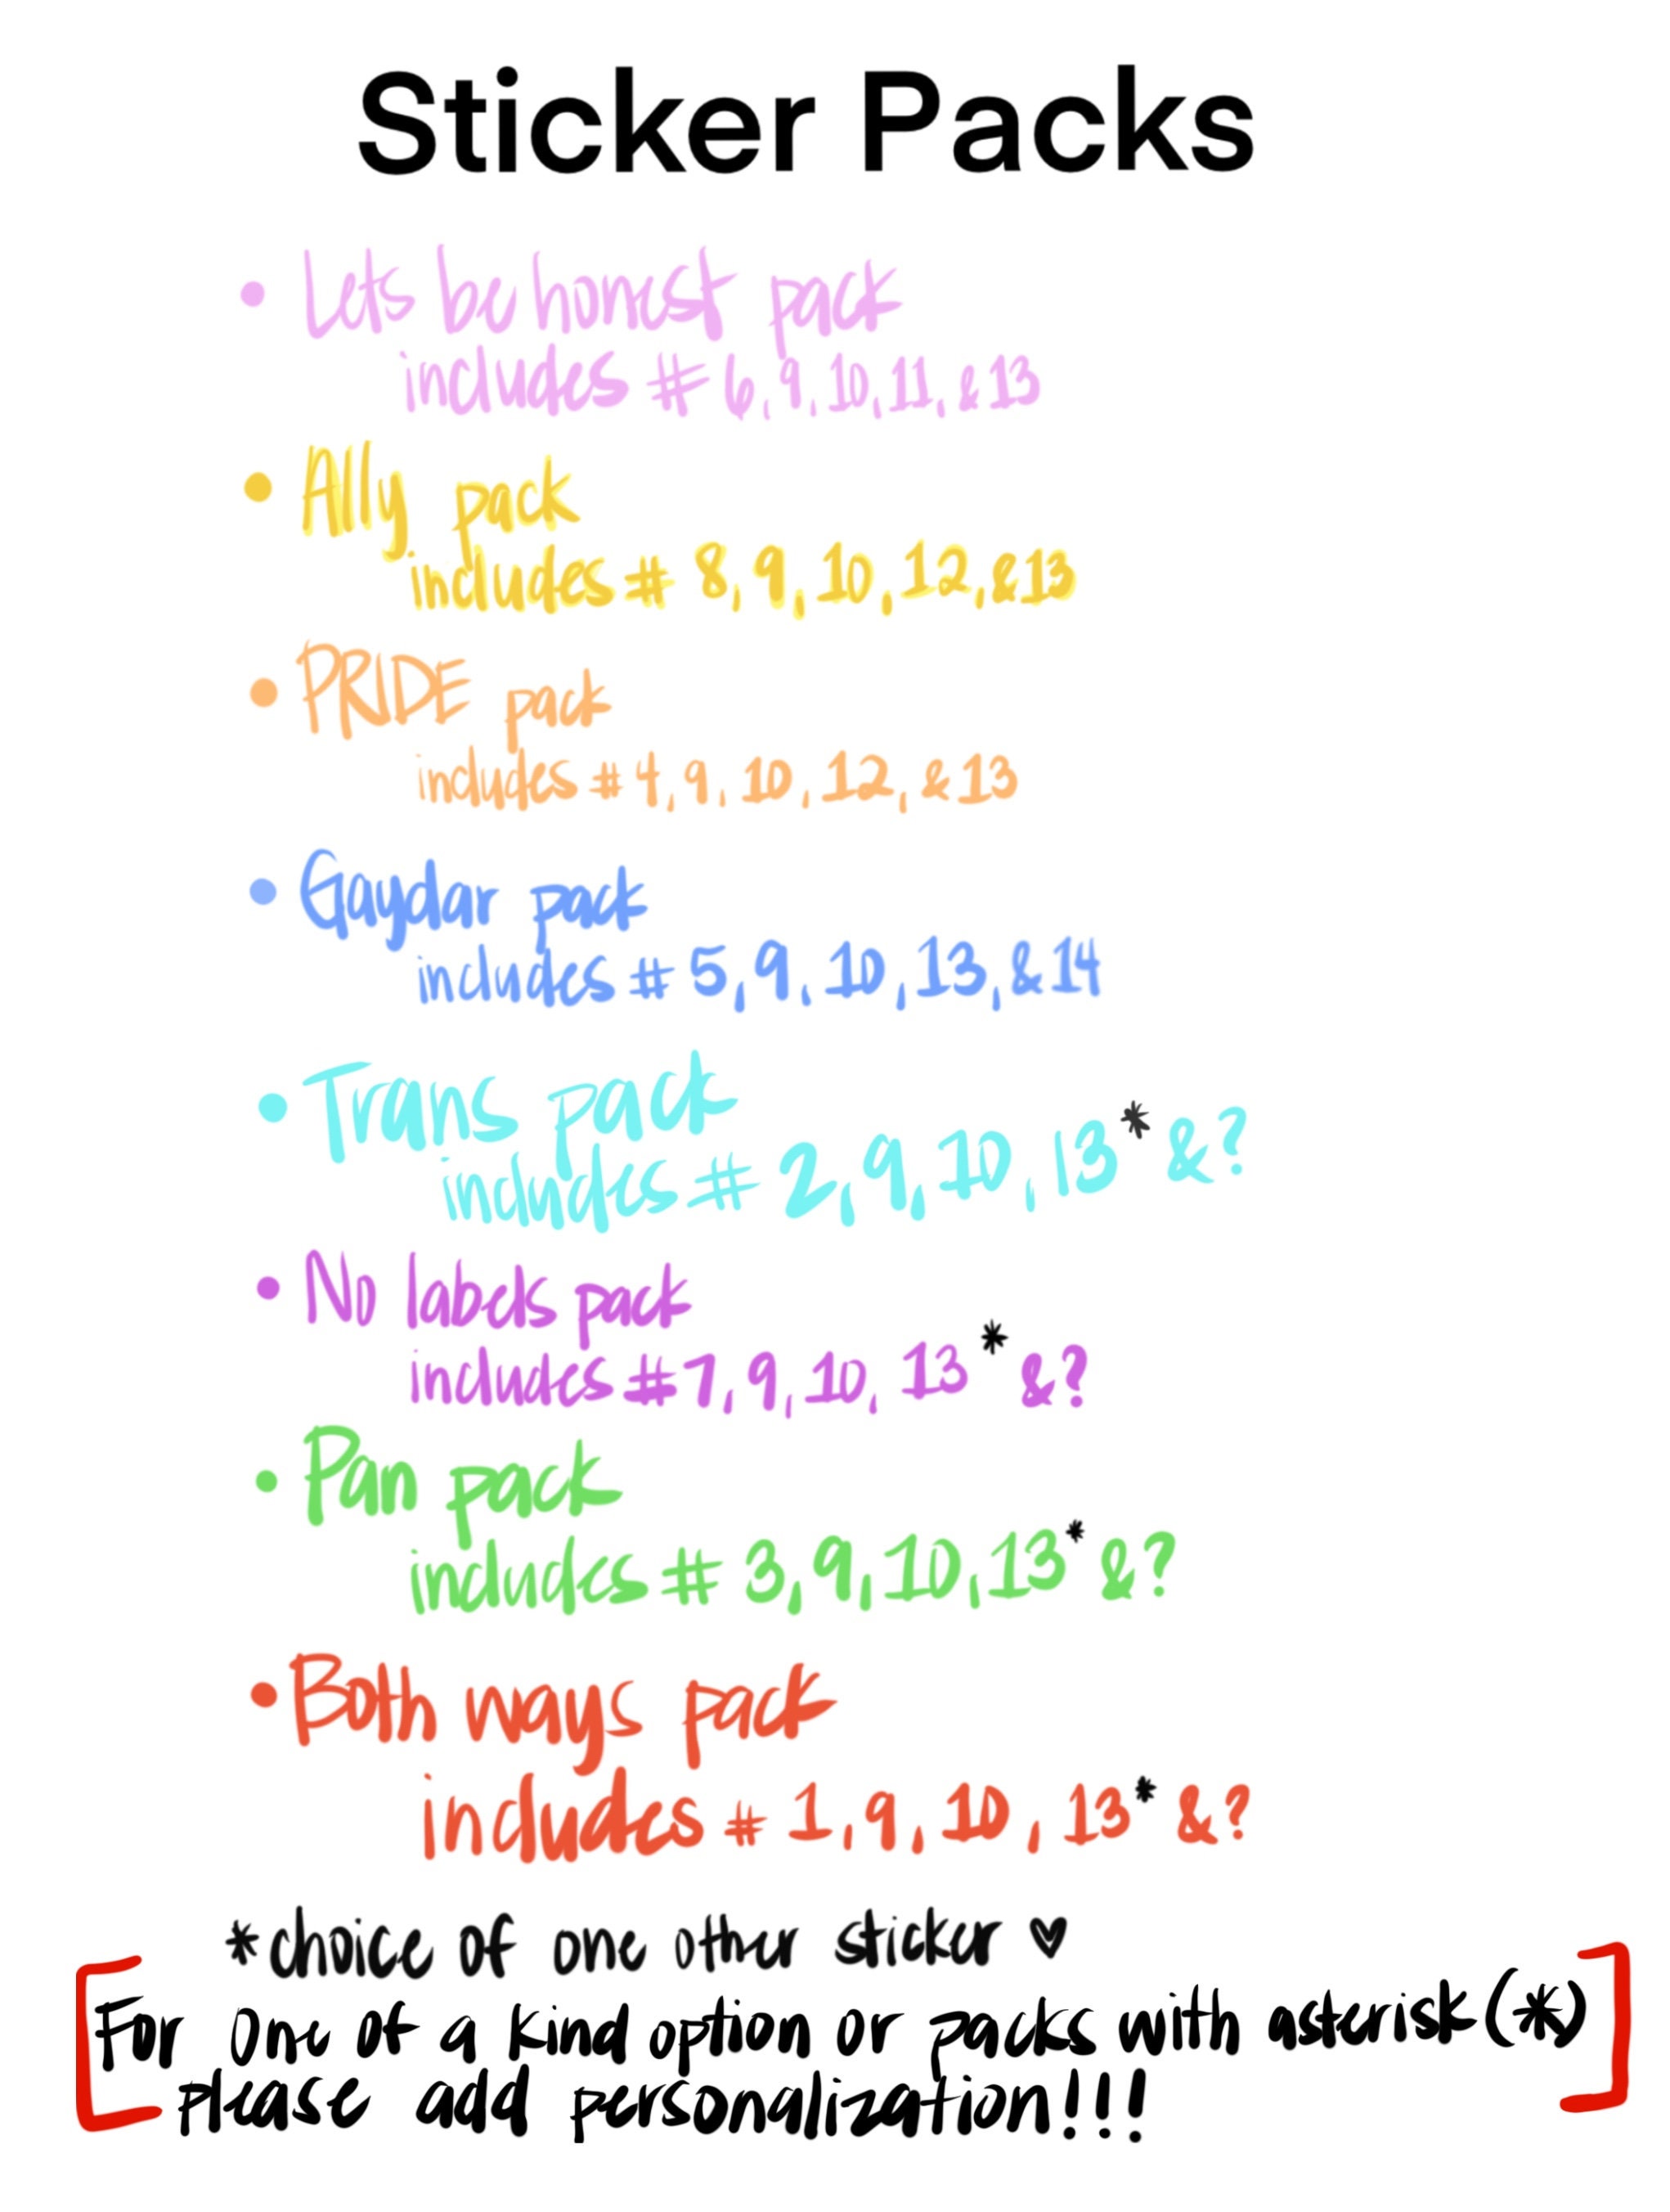 Sticker Packs
• Lets be honest pack
includes # 6, 9, 10, 11, & 13
• Ally pack
includes # 8, 9, 10, 12, & 13
• PRIDE pack
includes # 4, 9, 10, 12, & 13
• Gaydar pack
includes # 5, 9, 10, 13, & 14
• Trans pack
includes # 2, 9, 10, 13* & ?
• No labels pack
includes # 7, 9, 10, 13* & ?
• Pan pack
includes # 3, 9, 10, 13* & ?
• Both ways pack
includes # 1, 9, 10, 13* & ?
*choice of one other sticker ♡
[For One of a kind option or packs with asterisk (*)
please add personalization!!!]